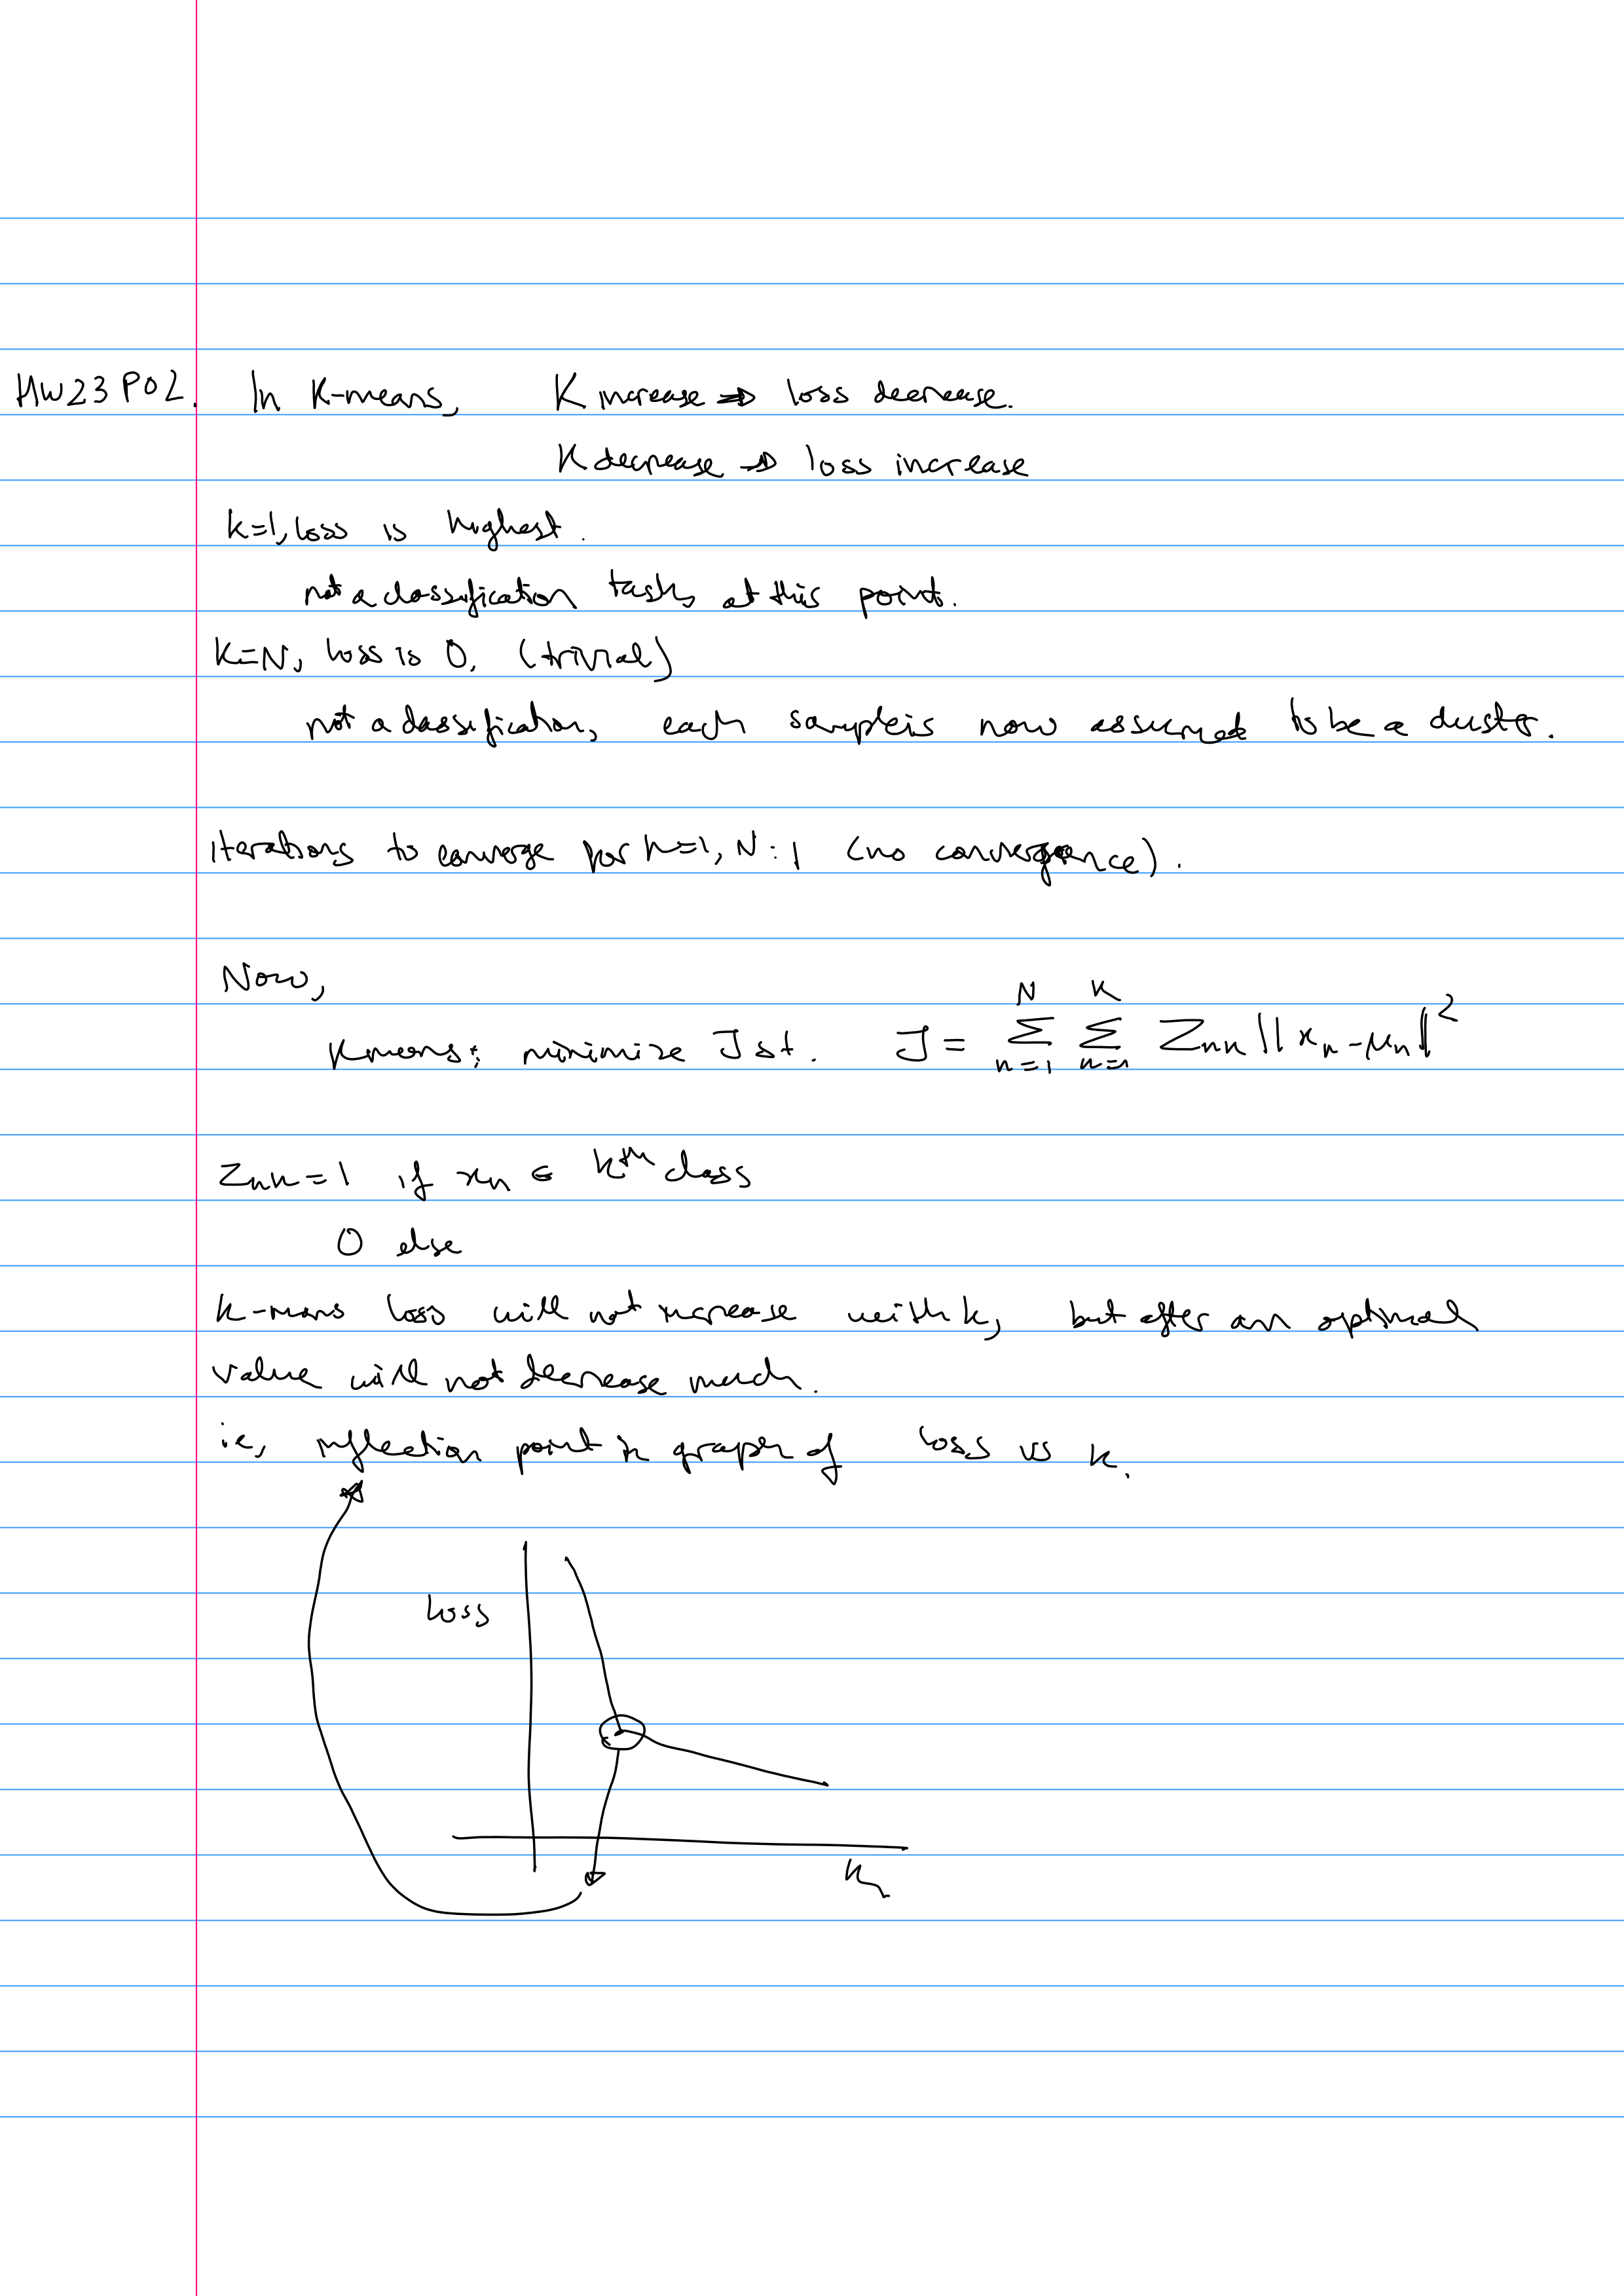 HW23 P02. In K-means, K increase ⇒ loss decrease.
K decrease ⇒ loss increase
k=1, loss is highest.
not a classification task at this point.
K=N, loss is 0. (trivial)
not a classification, each sample is now assumed to be a cluster.
iterations to converge for k=1, N : 1 (no convergence).
Now,
K means: minimize J st. J = Σ_{n=1}^{N} Σ_{k=1}^{K} Z_{nk} ||x_n - μ_k||²
Z_{nk} = 1 if x_n ∈ kth class
0 else
k-means loss will not increase with k, but after an optimal
value will not decrease much.
ie, inflection point in graph of loss vs k.
loss
k